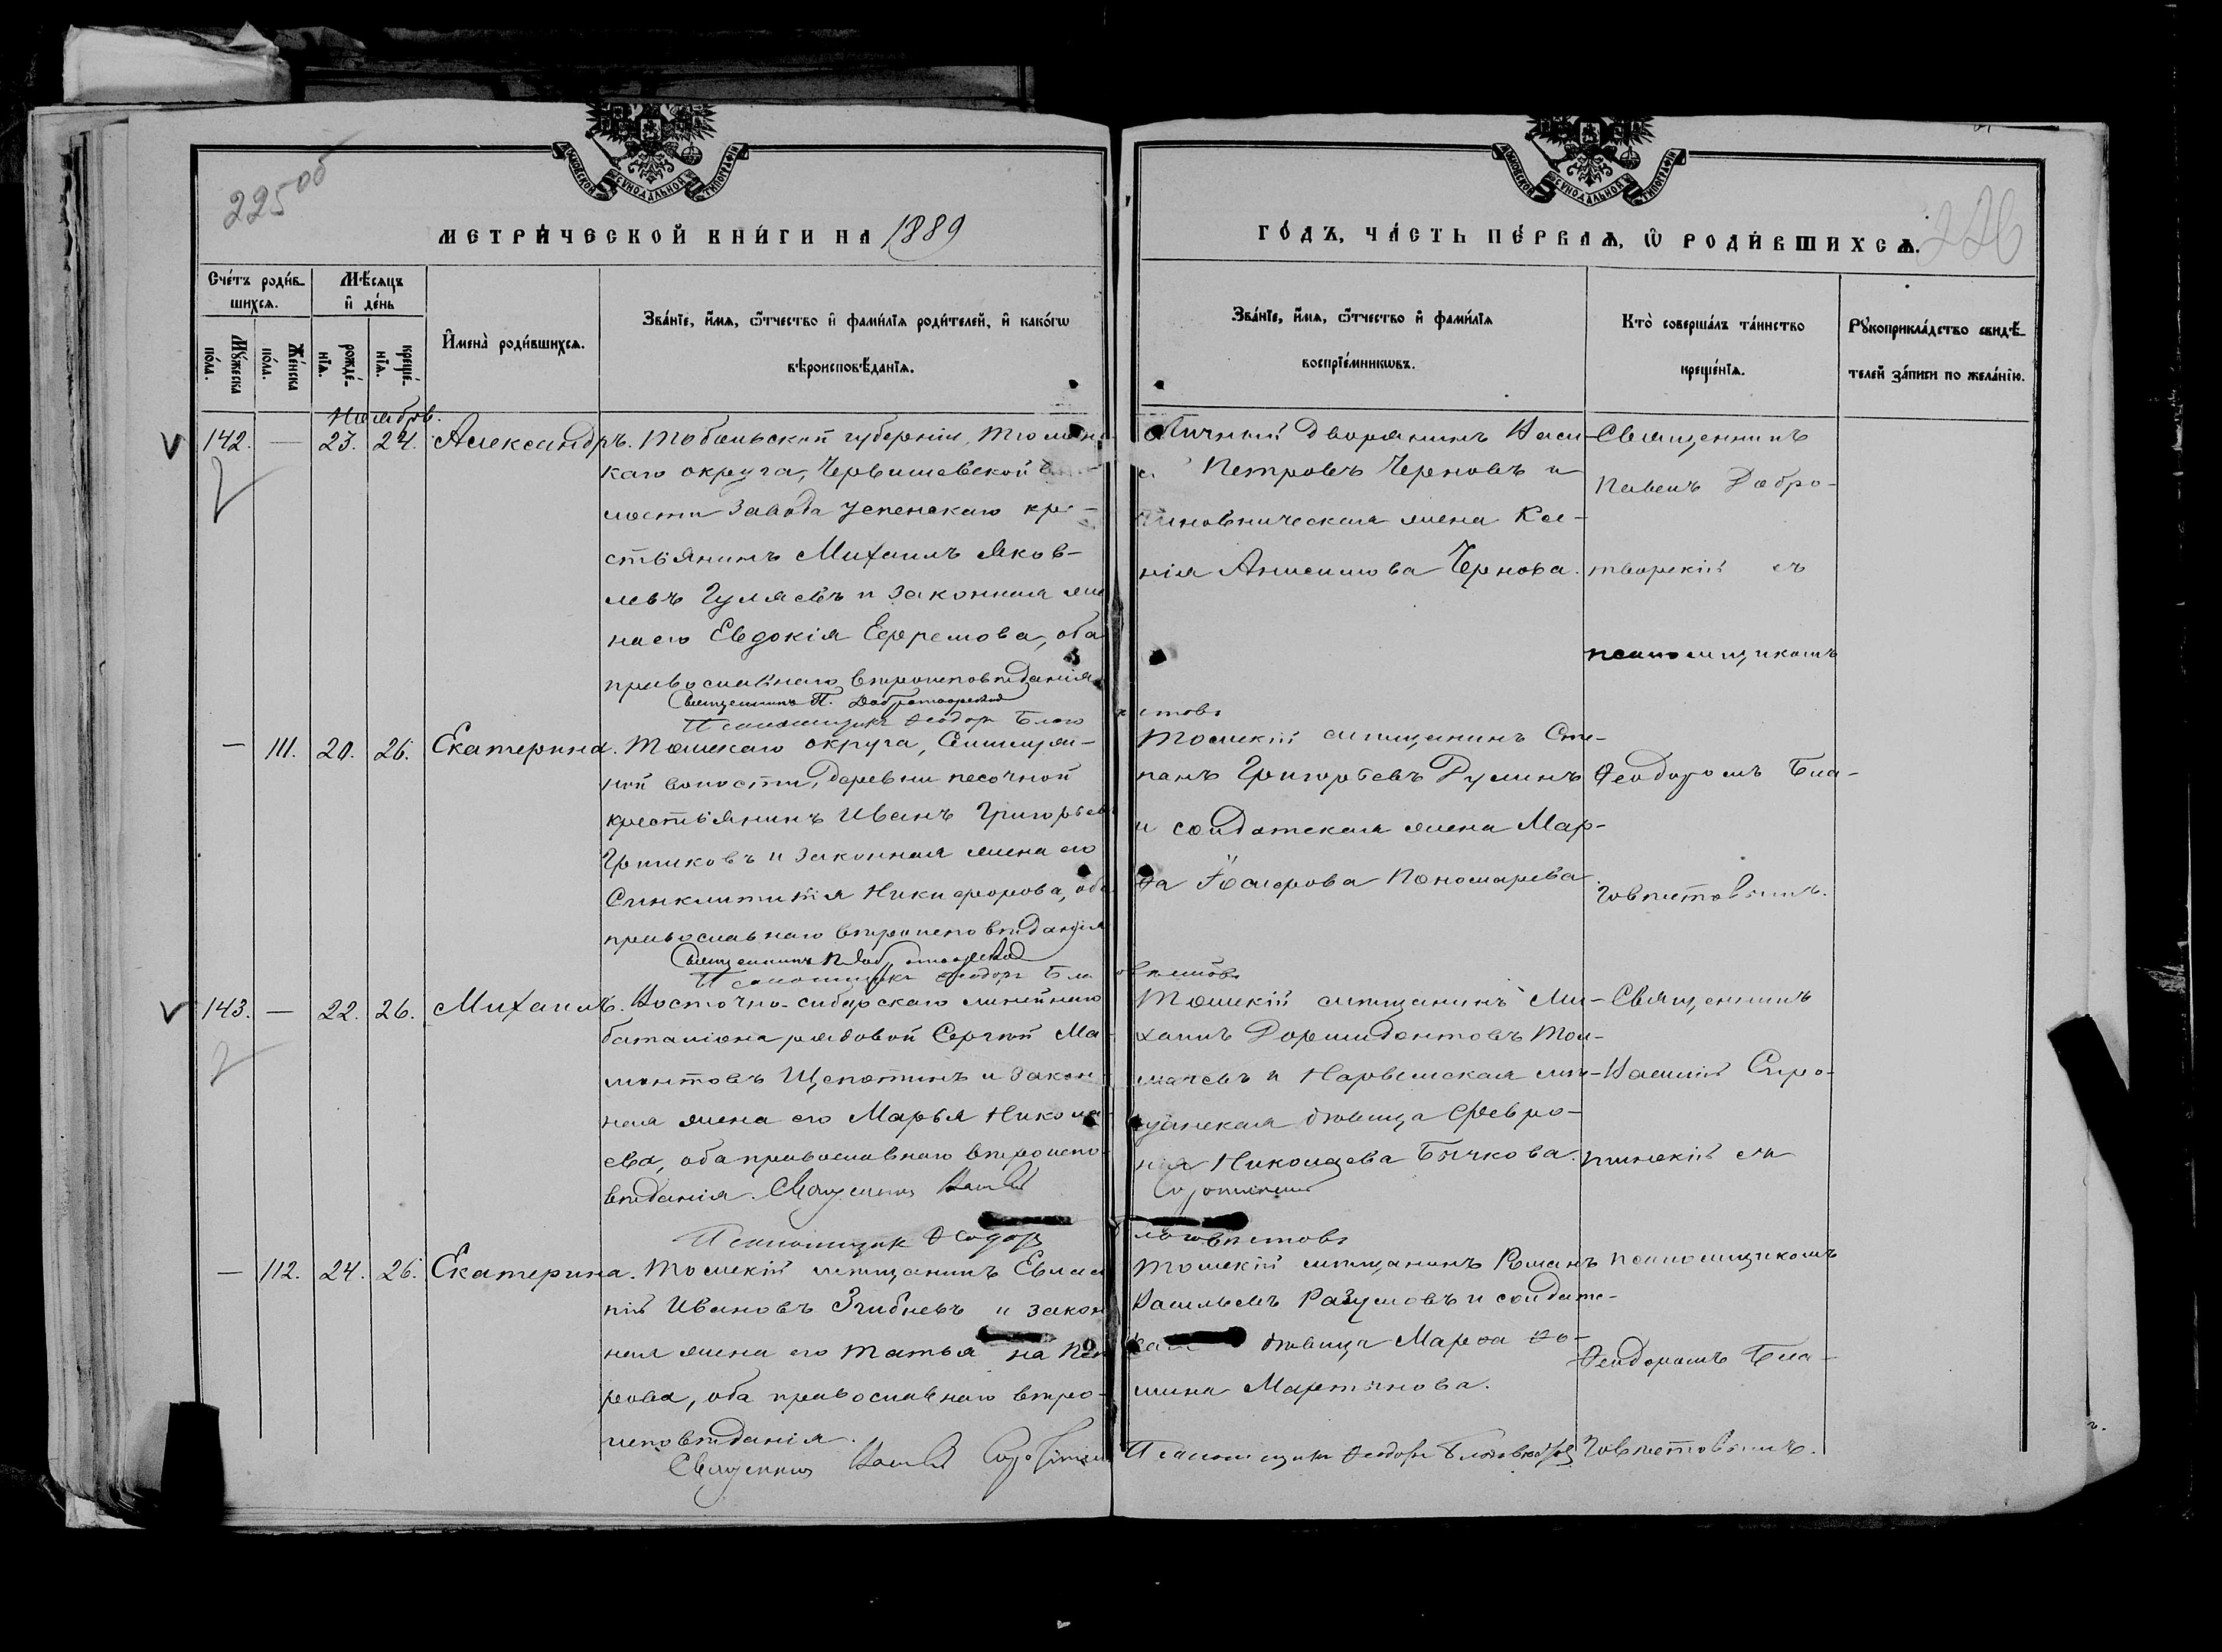 225 об
226
МЕТРИЧЕСКОЙ КНИГИ НА 1889
ГОДЪ, ЧАСТЬ ПЕРВАЯ, Ѡ РОДИВШИХСЯ.
Счетъ родив-
шихся.
Мужеска
пола.
Женска
пола.
Мѣсяцъ
и день
рожде-
нія.
креще-
нія.
Имена родившихся.
Званіе, имя, ѿтчество и фамилія родителей, и какогѡ
вѣроисповѣданія.
Званіе, имя, ѿтчество и фамилія
воспріемникѡвъ.
Кто совершалъ таинство
крещенія.
Рукоприкладство свидѣ-
телей записи по желанію.
Ноябрь.
142. — 23. 24. Александръ.
Тобольской губерніи, Тюменс
каго округа, Червишевской
лости завода Успенскаго кре-
стьянинъ Михаилъ Яков-
левъ Гуляевъ и законная же
на его Евдокія Ефремова, оба
православнаго вѣроисповѣданія
Священникъ П. Добротворскій
Псаломщикъ Ѳеодоръ Благо
вѣстовъ
Личный Дворянинъ Васи-
Петровъ Черновъ и
чиновническая жена Ксе-
нія Анисимова Чернова.
Священникъ
Павелъ Добро-
творскій съ
псаломщикомъ
— 111. 20. 26. Екатерина.
Томскаго округа, Семилуж-
ной волости, деревни песочной
крестьянинъ Иванъ Григорьев
и законная жена его
Синклитикія Никифорова, оба
православнаго вѣроисповѣданія
Священникъ П. Добротворскій
Псаломщикъ Ѳеодоръ Благо
вѣстовъ
Томскій мѣщанинъ Сте-
панъ Григорьевъ Рулинъ
и солдатская жена Мар-
ѳа Пономарева.
Ѳеодоромъ Бла-
говѣстовымъ.
143. — 22. 26. Михаилъ.
Восточно-сибирскаго линейнаго
баталіона рядовой Сергѣй Ма-
монтовъ Щепоткинъ и закон-
ная жена его Марья Никола-
ева, оба православнаго вѣроиспо-
вѣданія. Священникъ Василій
Сиротинскій
Псаломщикъ Ѳеодоръ
Благовѣстовъ
Томскій мѣщанинъ Ми-
хаилъ Дормидонтовъ Тол-
мачевъ и Нарымская мѣ-
щанская дѣвица Февро-
нія Николаева Бычкова.
Священникъ
Василій Сиро-
тинскій съ
— 112. 24. 26. Екатерина.
Томскій мѣщанинъ Евлам
пій Ивановъ Згибневъ и закон
ная жена его Татья на
рова, оба православнаго вѣро-
исповѣданія.
Священникъ Василій Сиротинскій
Псаломщикъ Ѳеодоръ Благовѣстовъ
Томскій мѣщанинъ Романъ
Васильевъ Разумовъ и солдатс-
кая дѣвица Марѳа Ѳо-
мина Мартынова.
псаломщикомъ
Ѳеодоромъ Бла-
говѣстовымъ.
МОСКОВСКОЙ СУНОДАЛЬНОЙ ТИПОГРАФІИ
МОСКОВСКОЙ СУНОДАЛЬНОЙ ТИПОГРАФІИ